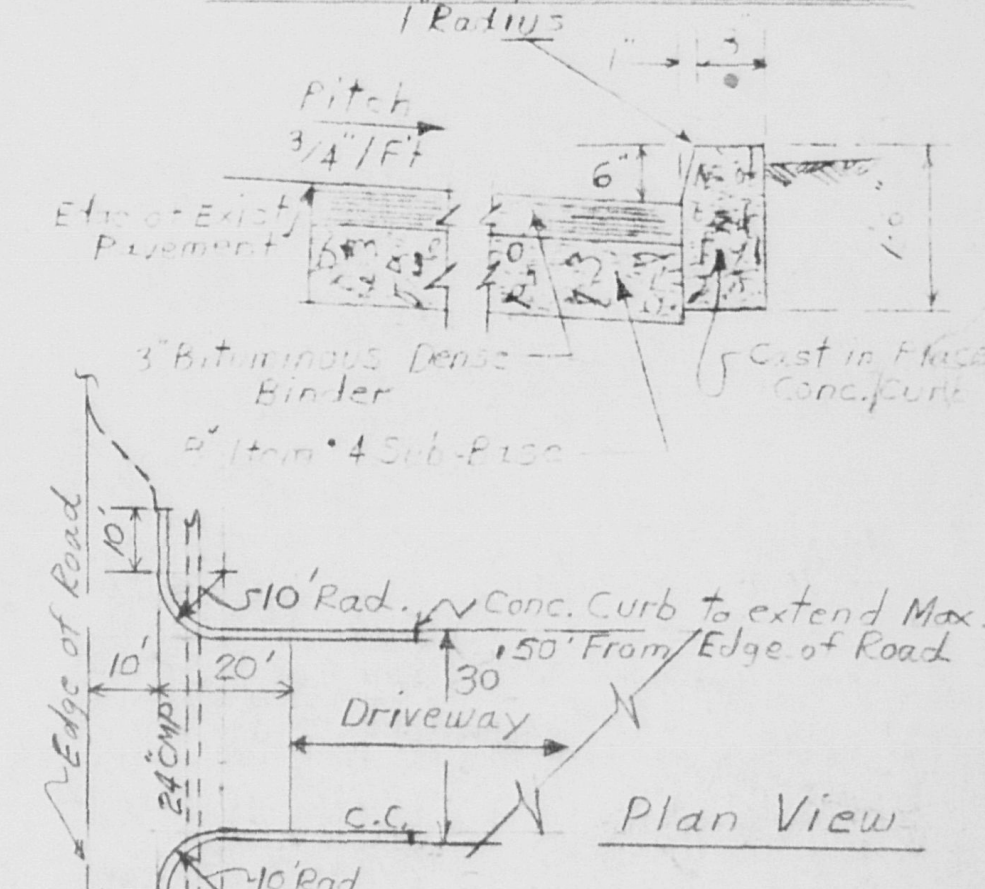 1" Radius
1"
Pitch
3/4" / Ft
6"
Edge of Exist.
Pavement
3" Bituminous Dense
Binder
Cast in Place
Conc. Curb
8" Item #4 Sub-Base
10'
Edge of Road
10' Rad.
Conc. Curb to extend Max.
50' From Edge of Road
10'
20'
30'
Driveway
24" CMP
C.C.
Plan View
10' Rad